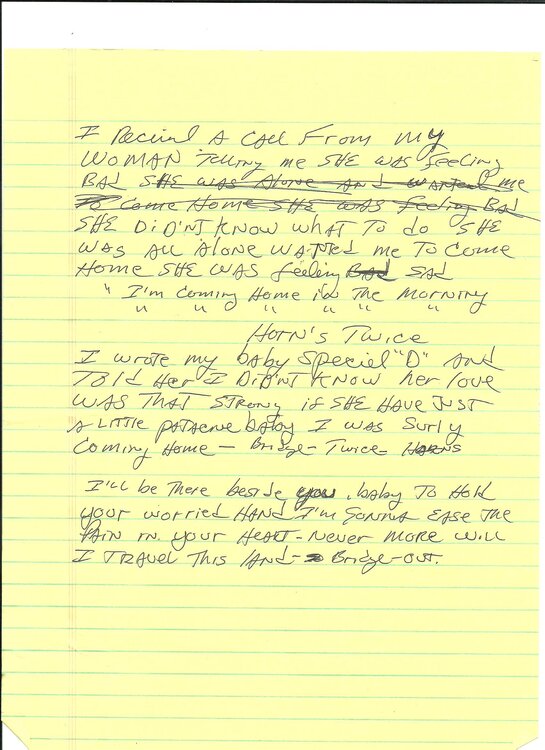 I Recived A CALL From my
WOMAN Telling me SHE WAS feeling
BAD SHE WAS Alone AND WANTED me
To Come Home SHE WAS feeling BAD
SHE DiDN'T KNOW WHAT To do SHE
WAS ALL Alone WANTED me To Come
Home SHE WAS feeling BAD SAD
" I'm coming Home in The morning
" " " " " "
HORN'S Twice
I wrote my baby Special "D" AND
Told Her I DiDN'T KNOW her love
WAS THAT STRONG if SHE HAVE JUST
A LiTTle PATAENE baby I WAS Surly
Coming Home - Bridge - Twice - HORNS
I'll be There beside you, baby To Hold
your worried HAND I'm Gonna EASE The
PAIN in your HEART - Never more will
I TRAVEL THIS lAND - Bridge-out.